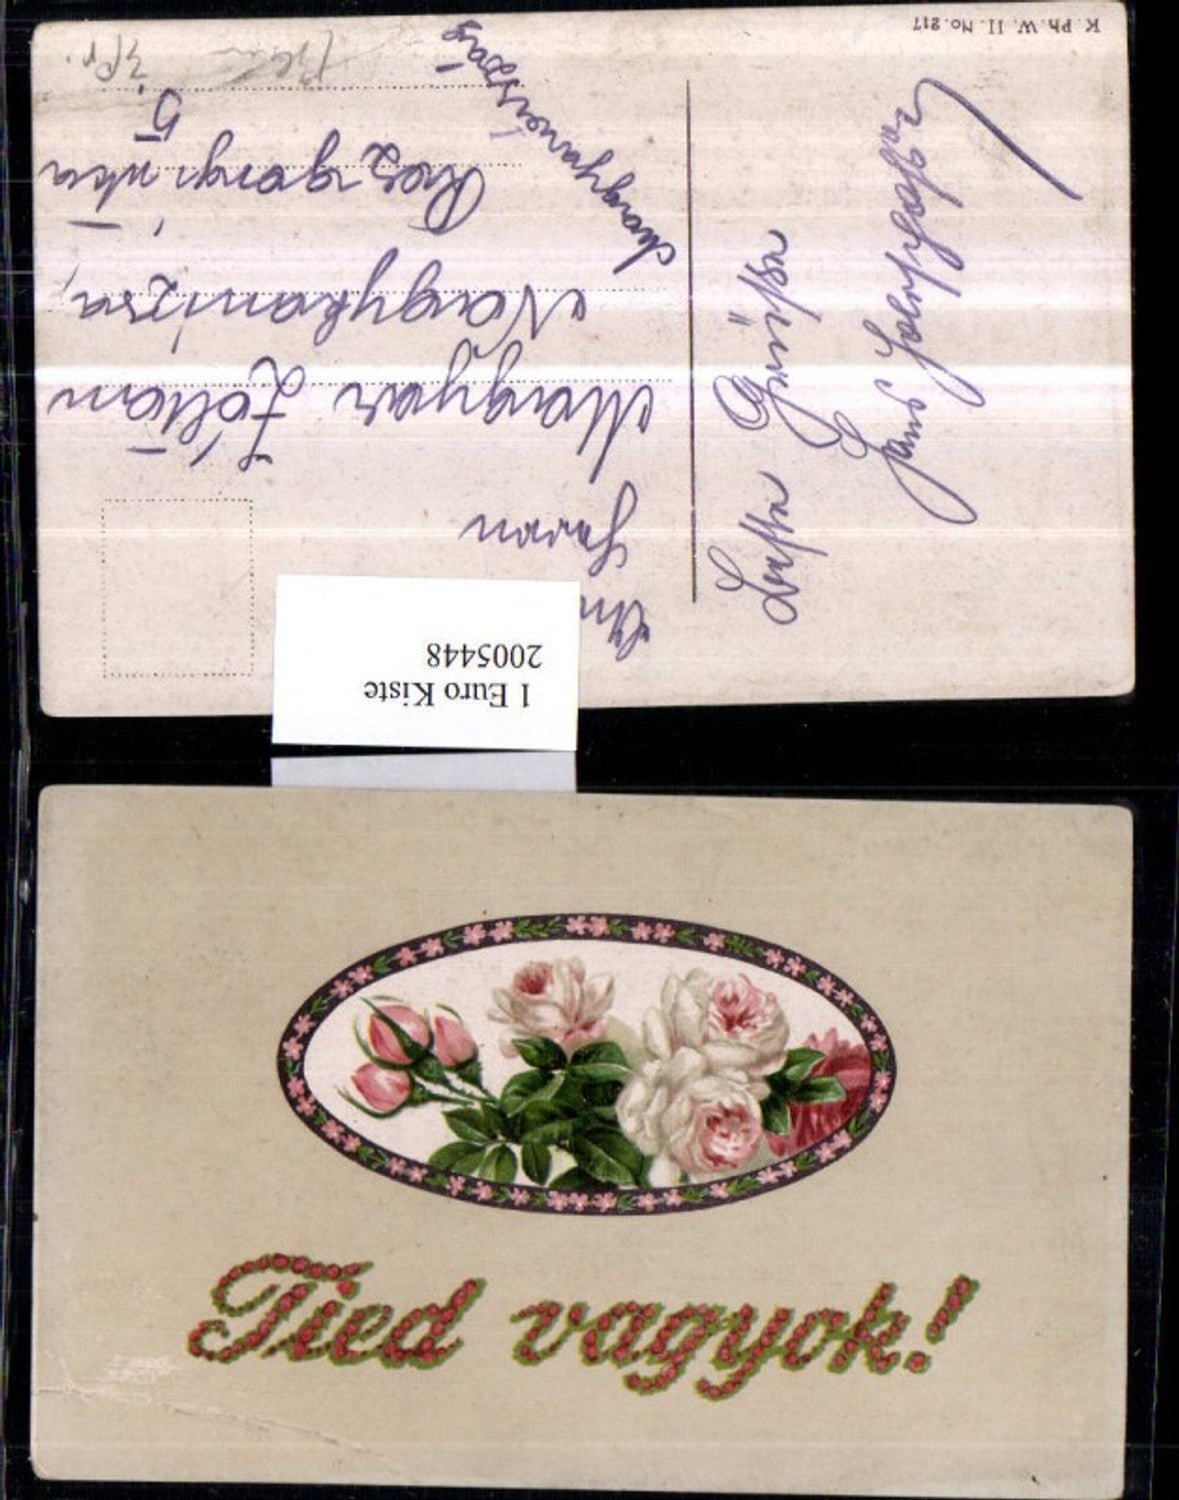 K. Ph. W. II. No. 217
An
Herrn
Magyar Zoltán
Nagykanizsa,
Rozgonyi utca
5
Magyarország
Beste Grüße
Hans
1 Euro Kiste
2005448
Tied vagyok!